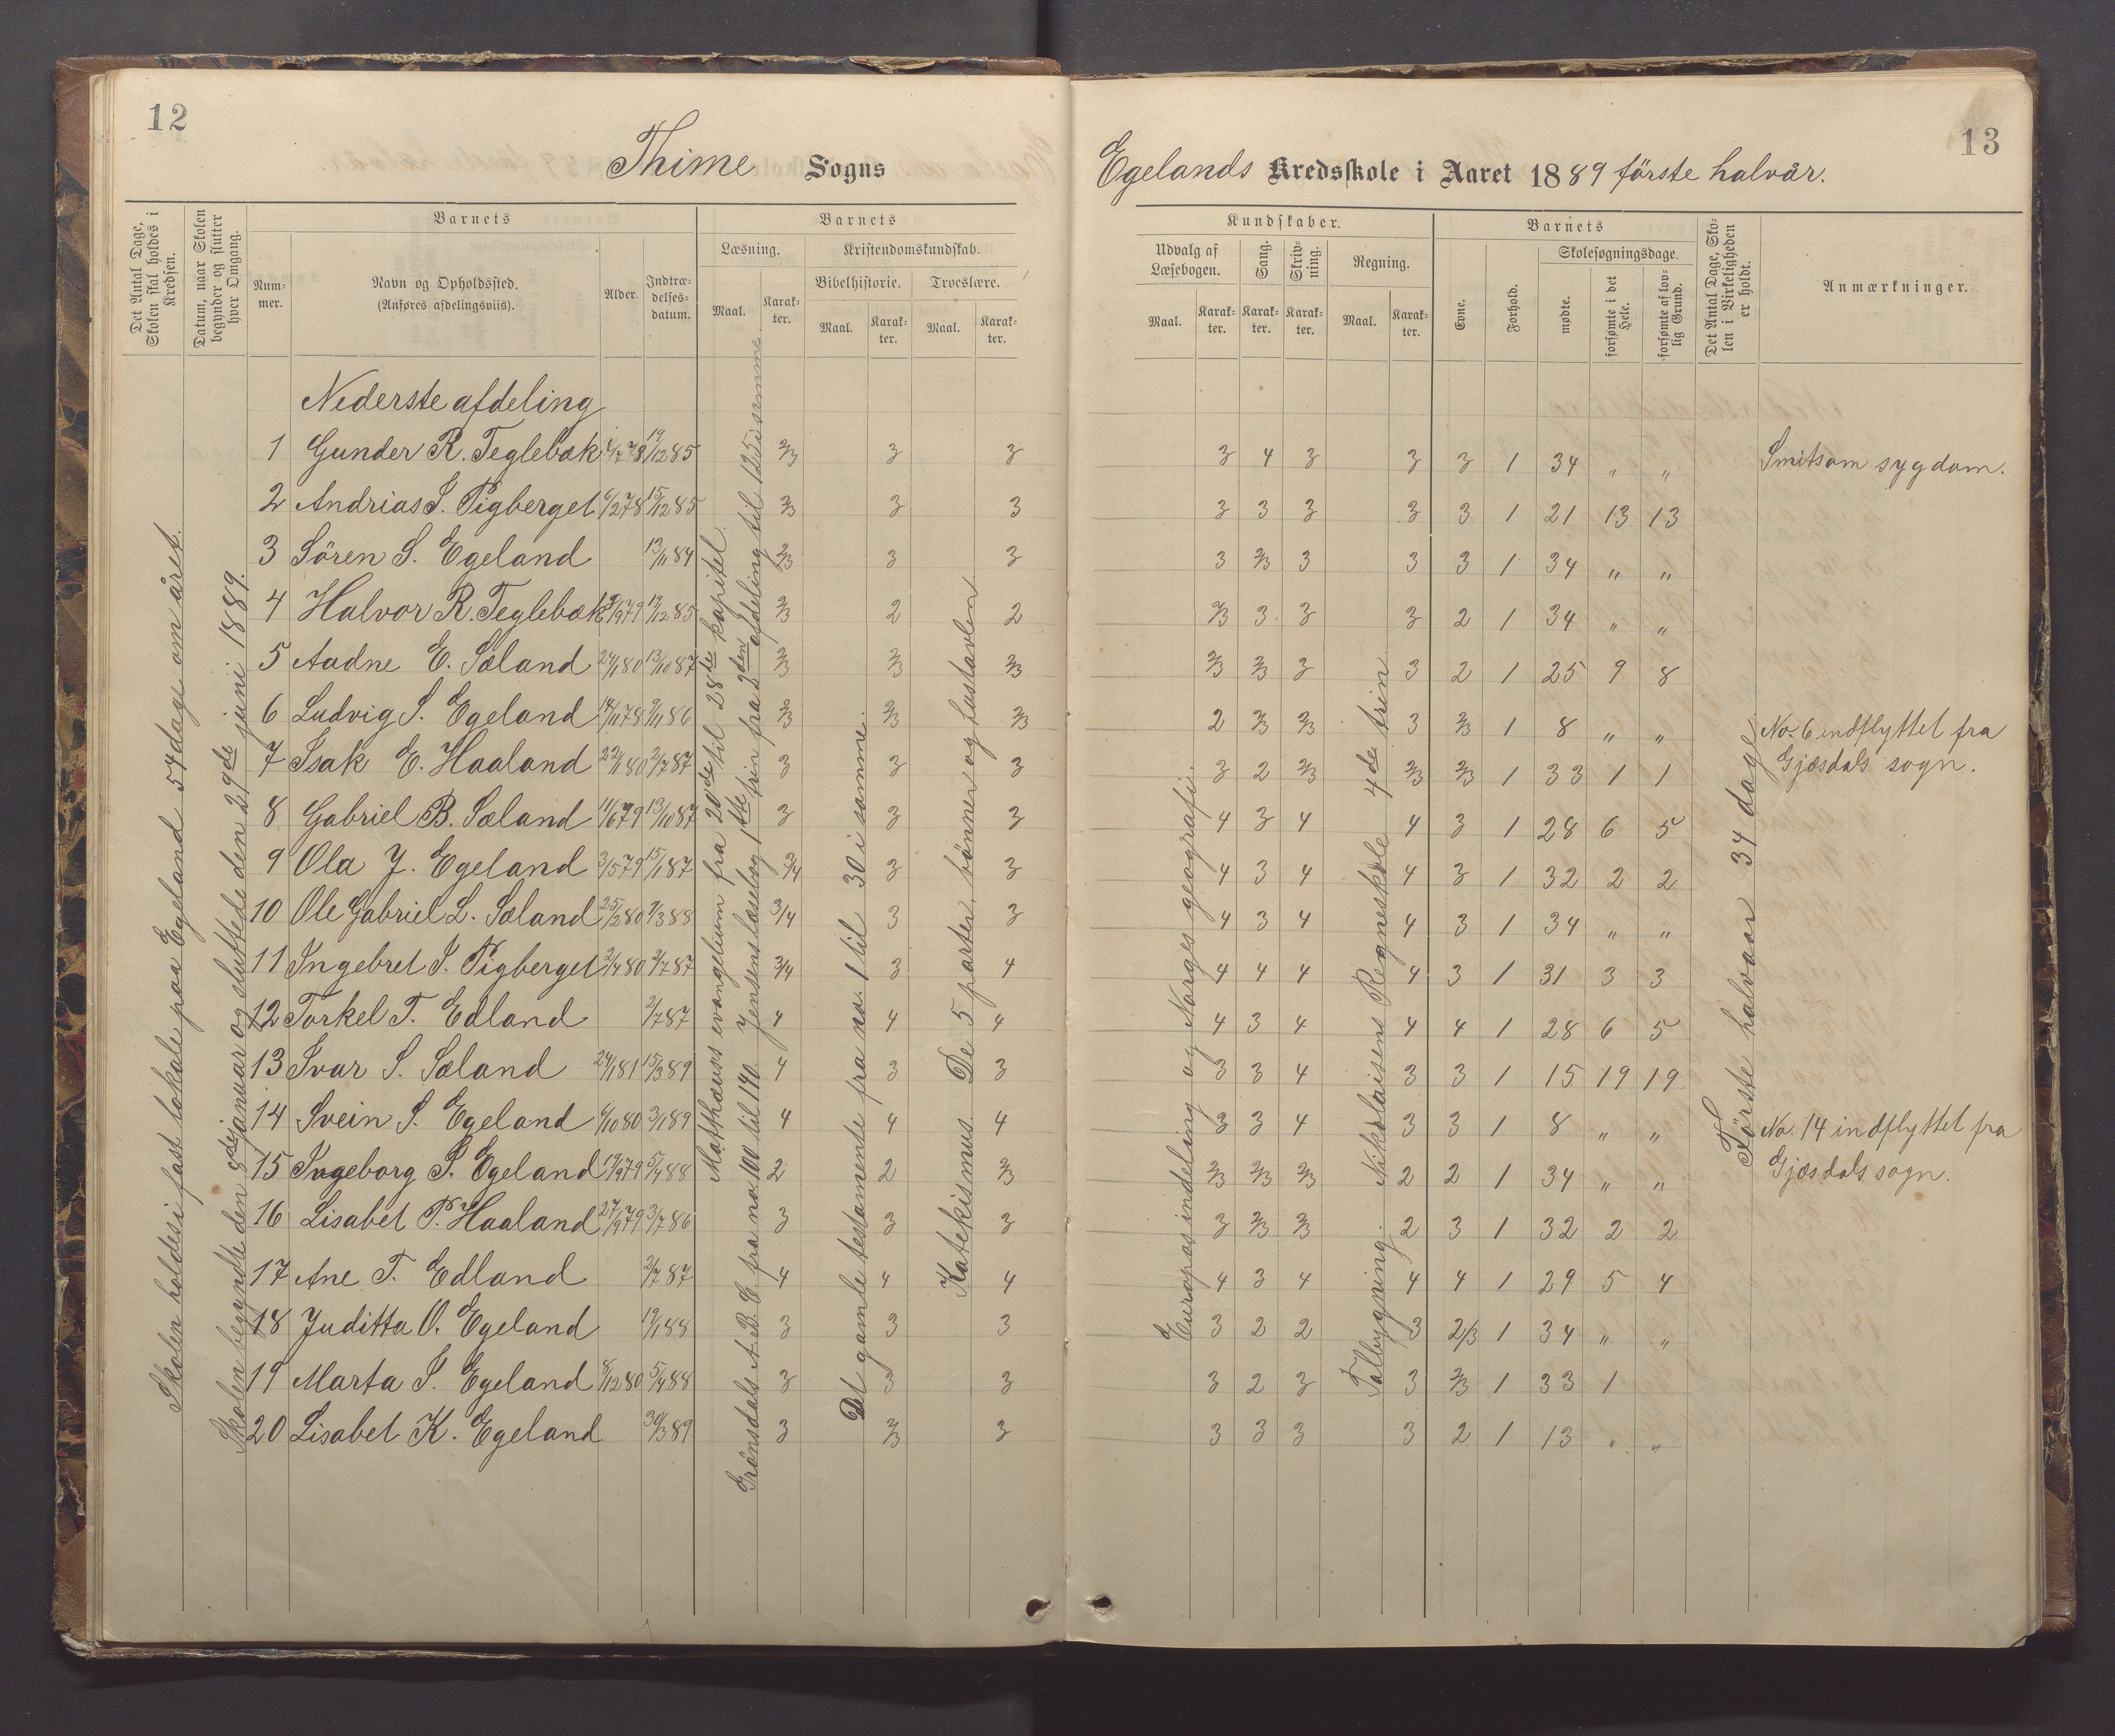 12
Thime Sogns
Det Antal Dage, Skolen skal holdes i Kredsen.
Datum, naar Skolen begynder og slutter hver Omgang.
Barnets
Nummer.
Navn og Opholdssted.
(Anføres afdelingsviis).
Alder.
Indtrædelses-datum.
Barnets
Læsning.
Kristendomskundskab.
Bibelhistorie.
Troeslære.
Maal.
Karakter.
Maal.
Karakter.
Maal.
Karakter.
Skolen holdes i fast lokale paa Egeland 54 dage om året.
Skolen begyndte den 8de januar og sluttede den 29de juni 1889.
Matthæus evangelium fra 20de til 28de kapitel.
Grönsdals A.B.C. fra no 100 til 140. Jensens læsebog 1ste trin fra 2den afdeling til 125 i samme
Det gamle testamente fra no. 1 til 30 i samme.
Katekismus. De 5 parter, bönner og hustavlen
Nederste afdeling
1 Gunder R. Teglebæk 19/12 85 2/3 3 3
2 Andrias S. Pigberget 6/2 78 15/12 85 2/3 3 3
3 Sören S. Egeland 13/11 84 2/3 3 3
4 Halvor R. Teglebæk 19/12 85 2/3 2 2
5 Aadne E. Sæland 24/1 80 13/10 87 2/3 2/3 2/3
6 Ludvig S. Egeland 14/11 78 9/11 86 2/3 2/3 2/3
7 Isak E. Haaland 22/11 80 2/7 87 3 3 3
8 Gabriel B. Sæland 11/6 79 13/10 87 3 3 3
9 Ola J. Egeland 3/5 79 15/1 87 3/4 3 3
10 Ole Gabriel L. Sæland 25/2 80 7/3 88 3/4 3 3
11 Ingebret S. Pigberget 2/4 80 2/7 87 3/4 3 4
12 Torkel T. Edland 2/7 87 4 4 4
13 Ivar S. Sæland 24/1 81 15/3 89 4 3 3
14 Svein S. Egeland 6/10 80 3/1 89 4 4 4
15 Ingeborg S. Egeland 19/9 79 5/4 88 2 2 2/3
16 Lisabet P. Haaland 27/9 79 3/7 86 3 3 3
17 Ane T. Edland 2/7 87 4 4 4
18 Juditta O. Egeland 19/1 88 3 3 3
19 Marta S. Egeland 8/12 80 5/4 88 3 3 3
20 Lisabet K. Egeland 30/3 89 3 2/3 3
13
Egelands Kredsskole i Aaret 1889 förste halvår.
Kundskaber.
Udvalg af Læsebogen.
Sang.
Skrivning.
Regning.
Maal.
Karakter.
Karakter.
Karakter.
Maal.
Karakter.
Barnets
Evne.
Forhold.
Skolesøgningsdage.
mødte.
forsømte i det Hele.
forsømte af lovlig Grund.
Det Antal Dage, Skolen i Virkeligheden er holdt.
Anmærkninger.
Europas inddeling og Norges geografi.
Talbygning. Nikolaisens Regneskole 4de trin
Förste halvaar 34 dage
3 4 3 3 3 1 34 " " Smitsom sygdom.
3 3 3 3 3 1 21 13 13
3 2/3 3 3 3 1 34 " "
2/3 3 3 3 2 1 34 " "
2/3 2/3 3 3 2 1 25 9 8
2 2/3 2/3 3 2/3 1 8 " " No. 6 indflyttet fra
Gjæsdals sogn.
3 2 2/3 2/3 2/3 1 33 1 1
4 3 4 4 3 1 28 6 5
4 3 4 4 3 1 32 2 2
4 3 4 4 3 1 34 " "
4 4 4 4 3 1 31 3 3
4 3 4 4 4 1 28 6 5
3 3 4 3 3 1 15 19 19
3 3 4 3 3 1 8 " " No. 14 indflyttet fra
Gjæsdals sogn.
2/3 2/3 2/3 2 2 1 34 " "
3 2/3 2/3 2 3 1 32 2 2
4 3 4 4 4 1 29 5 4
3 2 2 3 2/3 1 34 " "
3 2 3 3 2/3 1 33 1
3 3 3 3 2 1 13 " "